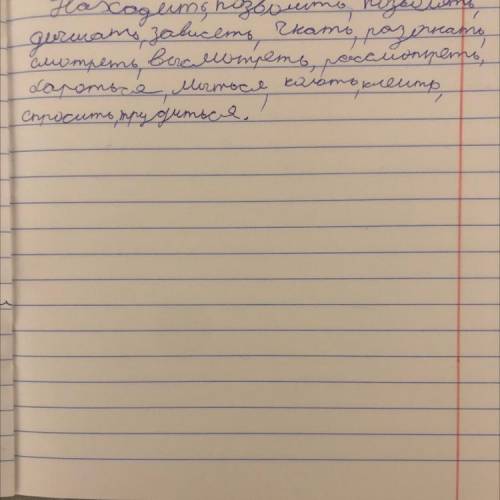 Находить, позволить, позволять,
дышать, зависеть, гнать, разогнать,
смотреть, высмотреть, рассмотреть,
бароться, мыться, колоть, клеить,
спросить, трудиться.